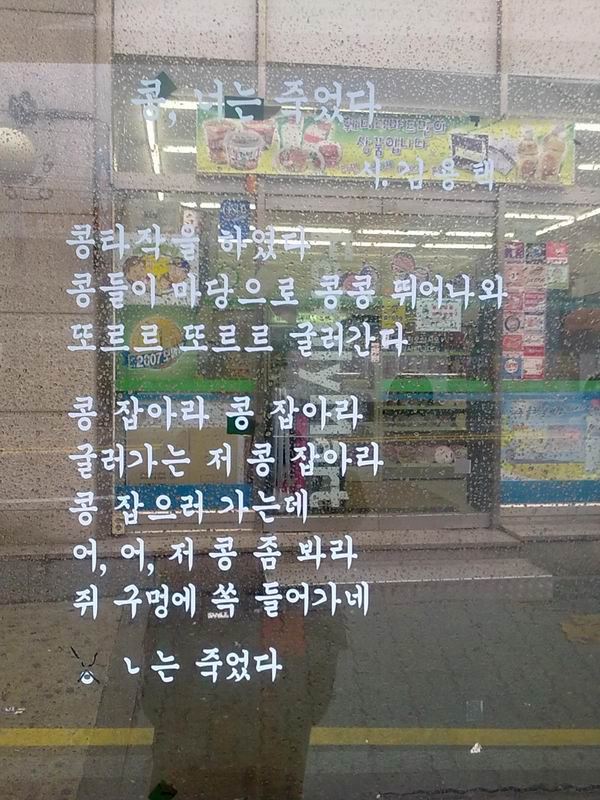 콩, 너는 죽었다
상품입니다
시. 김용택
콩타작을 하였다
콩들이 마당으로 콩콩 뛰어나와
또르르 또르르 굴러간다
2007
Mart
콩 잡아라 콩 잡아라
굴러가는 저 콩 잡아라
콩 잡으러 가는데
어, 어, 저 콩 좀 봐라
쥐 구멍에 쏙 들어가네
ㄴ는 죽었다